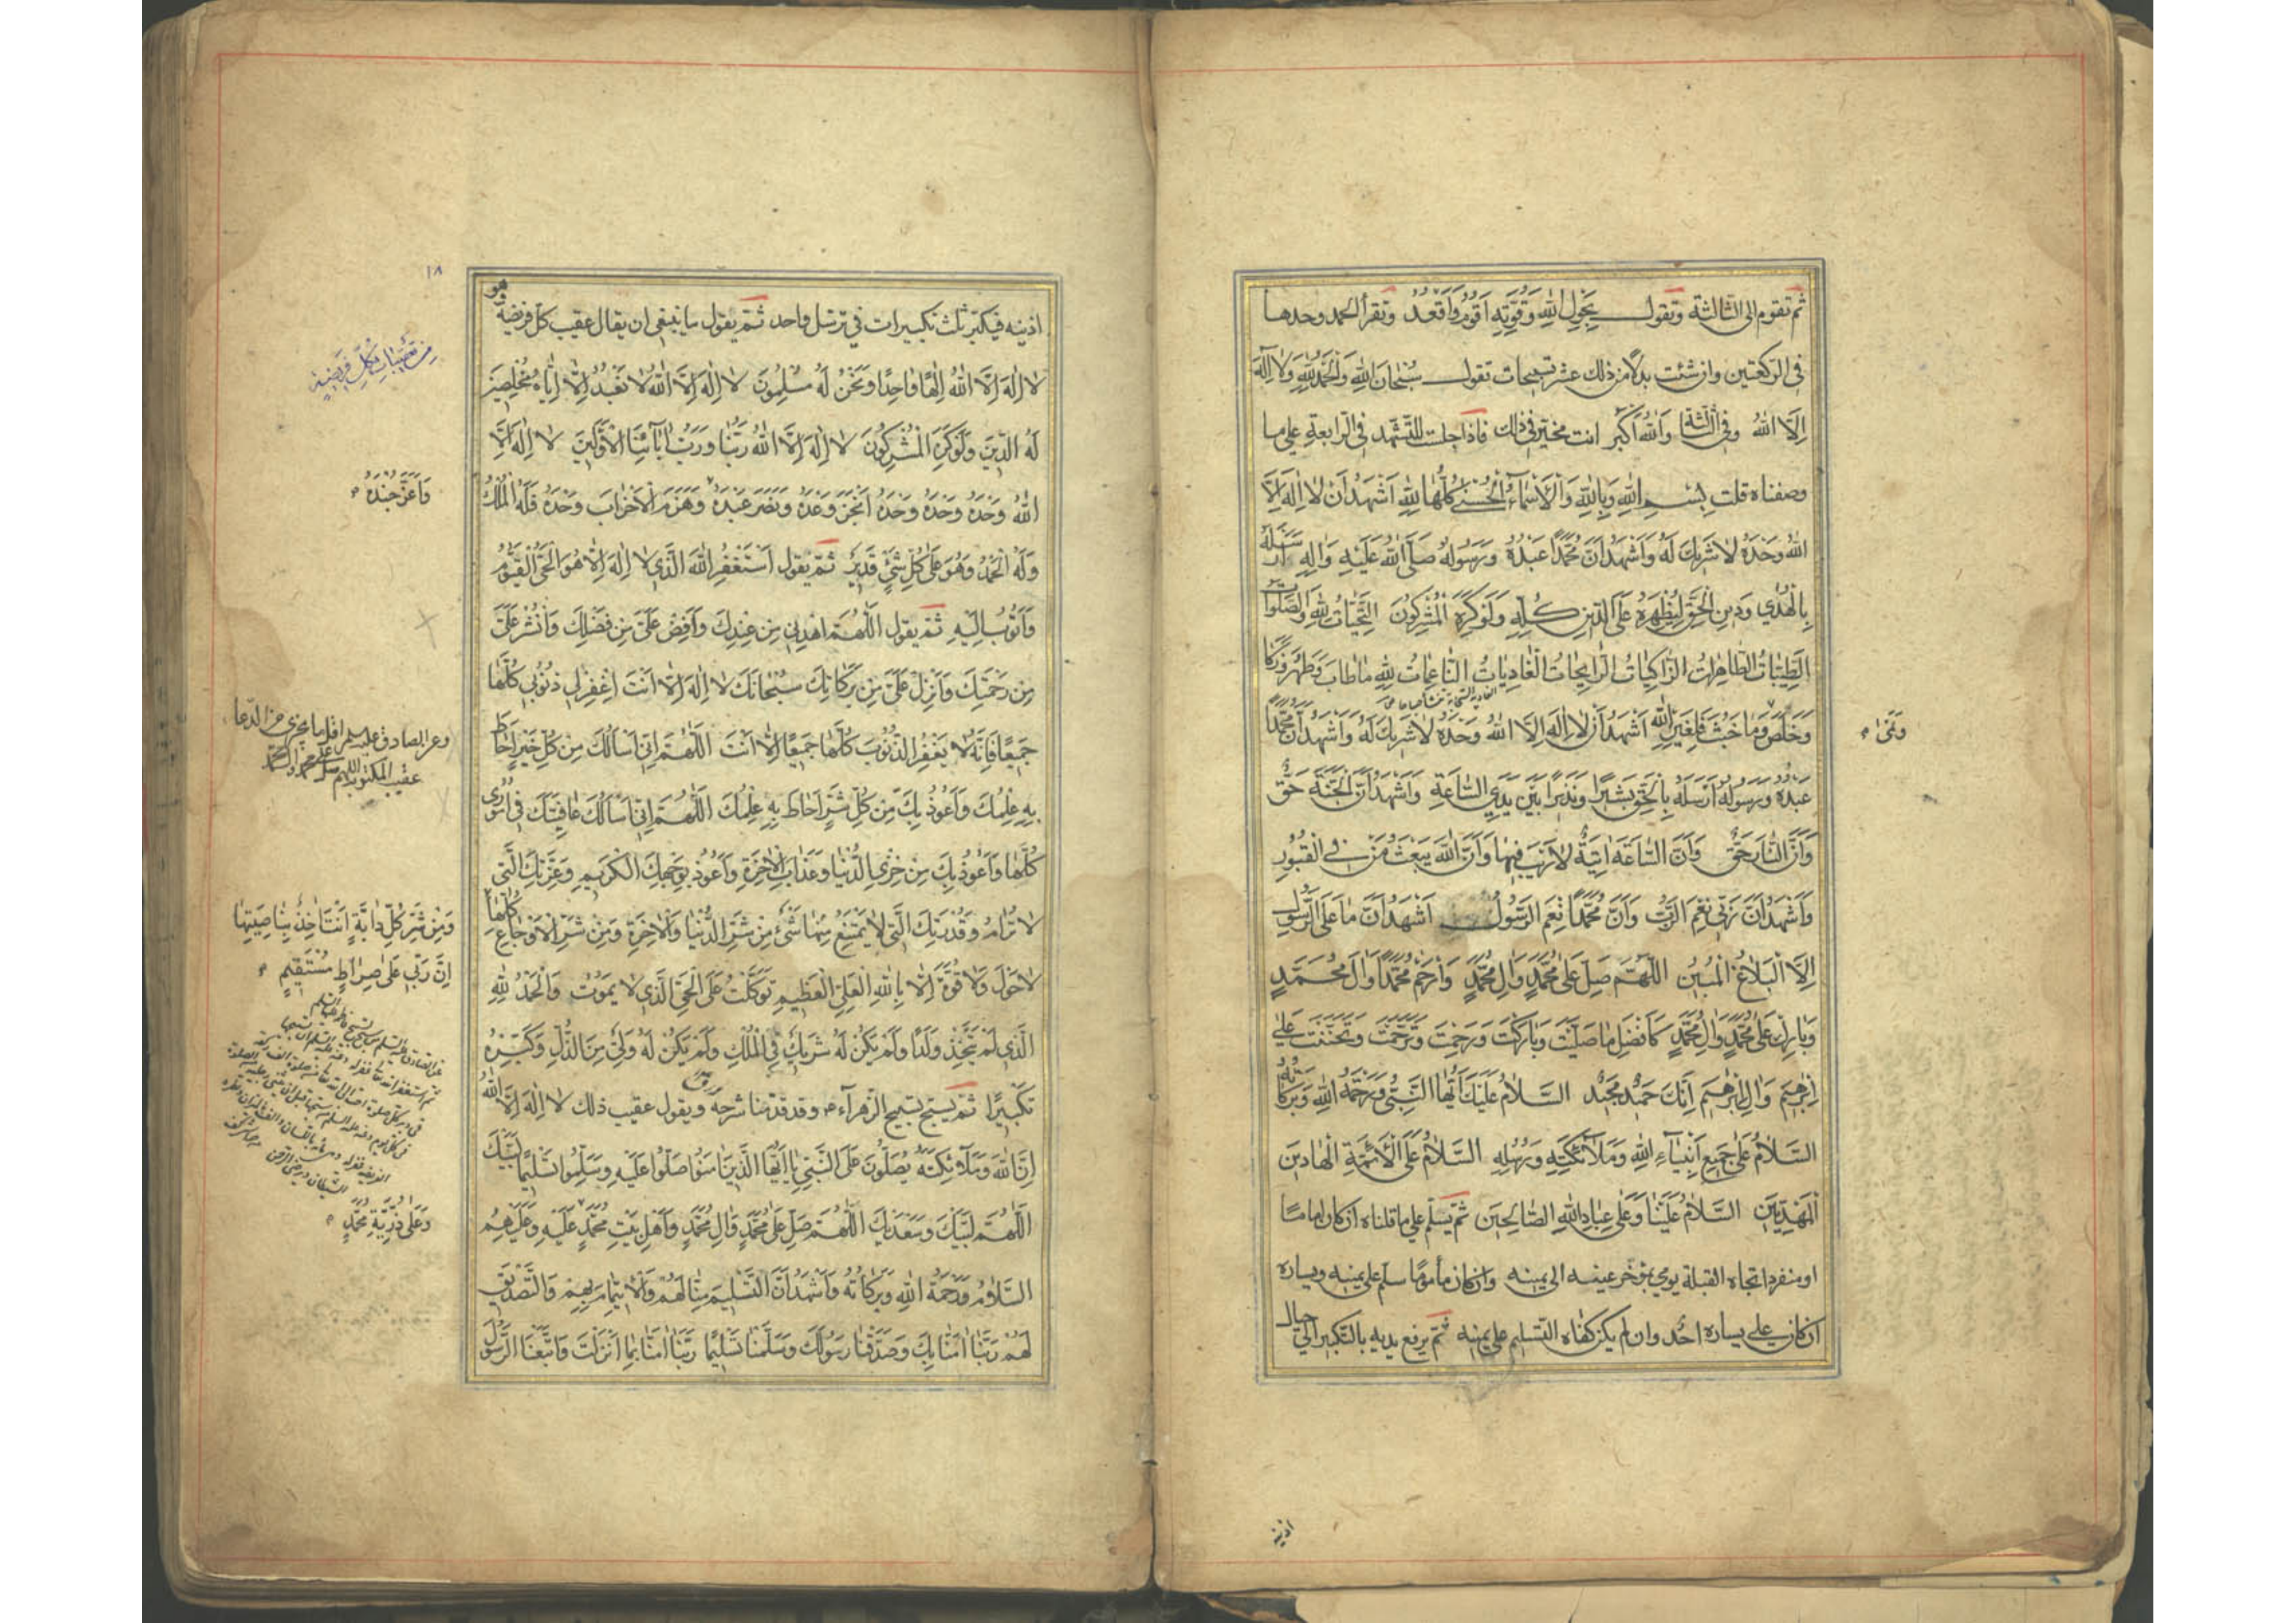 ثم تقوم الى الثالثة وتقول بِحَولِ اللهِ وَقُوَّتِهِ اَقُومُ وَاَقعُد وتقرأ الحمد وحدها
فى الركعتين وان شئت بدلاً من ذلك عشر تسبيحات تقول سُبْحانَ اللهِ وَالْحَمْدُ لِلهِ وَلا اِلٰهَ
اِلَّا اللهُ وفى الثالثة وَاللهُ اَكْبَر انت مخير فى ذلك فاذا جلست للتشهد فى الرابعة على ما
وصفناه قلت بِسْمِ اللهِ وَبِاللهِ وَالْاَسْماءُ الْحُسْنىٰ كُلُّها لِلهِ اَشْهَدُ اَنْ لا اِلٰهَ اِلَّا
اللهُ وَحْدَهُ لا شَرِيكَ لَهُ وَاَشْهَدُ اَنَّ مُحَمَّدًا عَبْدُهُ وَرَسُولُهُ صَلَّى اللهُ عَلَيْهِ وَالِهِ اَرْسَلَهُ
بِالْهُدىٰ وَدِينِ الْحَقِّ لِيُظْهِرَهُ عَلَى الدِّينِ كُلِّهِ وَلَوْ كَرِهَ الْمُشْرِكُونَ التَّحِيّاتُ لِلهِ وَالصَّلَواتُ
الطَّيِّباتُ الطّاهِراتُ الزّاكِياتُ الرّايِحاتُ الْغادِياتُ النّاعِماتُ لِلهِ ما طابَ وَطَهُرَ وَزَكا
وَخَلَصَ وَما خَبُثَ فَلِغَيْرِ اللهِ اَشْهَدُ اَنْ لا اِلٰهَ اِلَّا اللهُ وَحْدَهُ لا شَرِيكَ لَهُ وَاَشْهَدُ اَنَّ مُحَمَّدًا
وَنَمىٰ
عَبْدُهُ وَرَسُولُهُ اَرْسَلَهُ بِالْحَقِّ بَشِيرًا وَنَذِيرًا بَيْنَ يَدَيِ السّاعَةِ وَاَشْهَدُ اَنَّ الْجَنَّةَ حَقٌّ
وَاَنَّ النّارَ حَقٌّ وَاَنَّ السّاعَةَ اتِيَةٌ لا رَيْبَ فِيها وَاَنَّ اللهَ يَبْعَثُ مَنْ فِى الْقُبُورِ
وَاَشْهَدُ اَنَّ رَبِّى نِعْمَ الرَّبُّ وَاَنَّ مُحَمَّدًا نِعْمَ الرَّسُولُ اَشْهَدُ اَنَّ ما عَلَى الرَّسُولِ
اِلَّا الْبَلاغُ الْمُبِينُ اللّٰهُمَّ صَلِّ عَلىٰ مُحَمَّدٍ وَالِ مُحَمَّدٍ وَارْحَمْ مُحَمَّدًا وَالَ مُحَمَّدٍ
وَبارِكْ عَلىٰ مُحَمَّدٍ وَالِ مُحَمَّدٍ كَاَفْضَلِ ما صَلَّيْتَ وَبارَكْتَ وَرَحِمْتَ وَتَرَحَّمْتَ وَتَحَنَّنْتَ عَلىٰ
اِبْرٰهِيمَ وَالِ اِبْرٰهِيمَ اِنَّكَ حَمِيدٌ مَجِيدٌ السَّلامُ عَلَيْكَ اَيُّهَا النَّبِىُّ وَرَحْمَةُ اللهِ وَبَرَكاتُهُ
السَّلامُ عَلىٰ جَمِيعِ اَنْبِياءِ اللهِ وَمَلائِكَتِهِ وَرُسُلِهِ السَّلامُ عَلَى الْاَئِمَّةِ الْهادِينَ
الْمَهْدِيِّينَ السَّلامُ عَلَيْنا وَعَلىٰ عِبادِ اللهِ الصّالِحِينَ ثم يسلم على ما قلناه ان كان اماما
او منفردا تجاه القبلة يومى بمؤخر عينه الى يمينه وان كان مأموما سلم على يمينه ويساره
ان كان على يساره احد وان لم يكن كفاه التسليم على يمينه ثم يرفع يديه بالتكبير الى حيال
اذنيه
١٨
اذنيه فيكبر ثلث تكبيرات فى ترسل واحد ثم يقول ما ينبغى ان يقال عقيب كل فريضة وهو
من تعقيبات كل فريضة
لا اِلٰهَ اِلَّا اللهُ اِلٰهًا واحِدًا وَنَحْنُ لَهُ مُسْلِمُونَ لا اِلٰهَ اِلَّا اللهُ لا نَعْبُدُ اِلَّا اِيّاهُ مُخْلِصِينَ
لَهُ الدِّينَ وَلَوْ كَرِهَ الْمُشْرِكُونَ لا اِلٰهَ اِلَّا اللهُ رَبُّنا وَرَبُّ ابائِنَا الْاَوَّلِينَ لا اِلٰهَ اِلَّا
اللهُ وَحْدَهُ وَحْدَهُ وَحْدَهُ اَنْجَزَ وَعْدَهُ وَنَصَرَ عَبْدَهُ وَهَزَمَ الْاَحْزابَ وَحْدَهُ فَلَهُ الْمُلْكُ
وَاَعَزَّ جُنْدَهُ
وَلَهُ الْحَمْدُ وَهُوَ عَلىٰ كُلِّ شَىْءٍ قَدِيرٌ ثم يقول اَسْتَغْفِرُ اللهَ الَّذِى لا اِلٰهَ اِلّا هُوَ الْحَىُّ الْقَيُّومُ
وَاَتُوبُ اِلَيْهِ ثم يقول اَللّٰهُمَّ اهْدِنِى مِنْ عِنْدِكَ وَاَفِضْ عَلَىَّ مِنْ فَضْلِكَ وَانْشُرْ عَلَىَّ
مِنْ رَحْمَتِكَ وَاَنْزِلْ عَلَىَّ مِنْ بَرَكاتِكَ سُبْحانَكَ لا اِلٰهَ اِلّا اَنْتَ اغْفِرْ لِى ذُنُوبِى كُلَّها
جَمِيعًا فَاِنَّهُ لا يَغْفِرُ الذُّنُوبَ كُلَّها جَمِيعًا اِلّا اَنْتَ اَللّٰهُمَّ اِنِّى اَسْاَلُكَ مِنْ كُلِّ خَيْرٍ اَحاطَ
وعن الصادق عليه السلم اقل ما يجزى من الدعا
عقيب المكتوبة اللهم صل على محمد وال محمد
بِهِ عِلْمُكَ وَاَعُوذُ بِكَ مِنْ كُلِّ شَرٍّ اَحاطَ بِهِ عِلْمُكَ اَللّٰهُمَّ اِنِّى اَسْاَلُكَ عافِيَتَكَ فِى اُمُورِى
كُلِّها وَاَعُوذُ بِكَ مِنْ خِزْىِ الدُّنْيا وَعَذابِ الْاٰخِرَةِ وَاَعُوذُ بِوَجْهِكَ الْكَرِيمِ وَعِزَّتِكَ الَّتِى
لا تُرامُ وَقُدْرَتِكَ الَّتِى لا يَمْتَنِعُ مِنْها شَىْءٌ مِنْ شَرِّ الدُّنْيا وَالْاٰخِرَةِ وَمِنْ شَرِّ الْاَوْجاعِ كُلِّها
وَمِنْ شَرِّ كُلِّ دابَّةٍ اَنْتَ اخِذٌ بِناصِيَتِها
اِنَّ رَبِّى عَلىٰ صِراطٍ مُسْتَقِيمٍ
لا حَوْلَ وَلا قُوَّةَ اِلّا بِاللهِ الْعَلِىِّ الْعَظِيمِ تَوَكَّلْتُ عَلَى الْحَىِّ الَّذِى لا يَمُوتُ وَالْحَمْدُ لِلهِ
الَّذِى لَمْ يَتَّخِذْ وَلَدًا وَلَمْ يَكُنْ لَهُ شَرِيكٌ فِى الْمُلْكِ وَلَمْ يَكُنْ لَهُ وَلِىٌّ مِنَ الذُّلِّ وَكَبِّرْهُ
تَكْبِيرًا ثم يسبح تسبيح الزهراء وقد قدمنا شرحه ويقول عقيب ذلك لا اِلٰهَ اِلَّا اللهُ
اِنَّ اللهَ وَمَلٰئِكَتَهُ يُصَلُّونَ عَلَى النَّبِىِّ يا اَيُّهَا الَّذِينَ امَنُوا صَلُّوا عَلَيْهِ وَسَلِّمُوا تَسْلِيمًا لَبَّيْكَ
اَللّٰهُمَّ لَبَّيْكَ وَسَعْدَيْكَ اَللّٰهُمَّ صَلِّ عَلىٰ مُحَمَّدٍ وَالِ مُحَمَّدٍ وَاَهْلِ بَيْتِ مُحَمَّدٍ عَلَيْهِ وَعَلَيْهِمُ
وَعَلىٰ ذُرِّيَّةِ مُحَمَّدٍ
السَّلامُ وَرَحْمَةُ اللهِ وَبَرَكاتُهُ وَاَشْهَدُ اَنَّ التَّسْلِيمَ مِنّا لَهُمْ وَالْاِيتِمامَ بِهِمْ وَالتَّصْدِيقَ
لَهُمْ رَبَّنا امَنّا بِكَ وَصَدَّقْنا رَسُولَكَ وَسَلَّمْنا تَسْلِيمًا رَبَّنا امَنّا بِما اَنْزَلْتَ وَاتَّبَعْنَا الرَّسُولَ